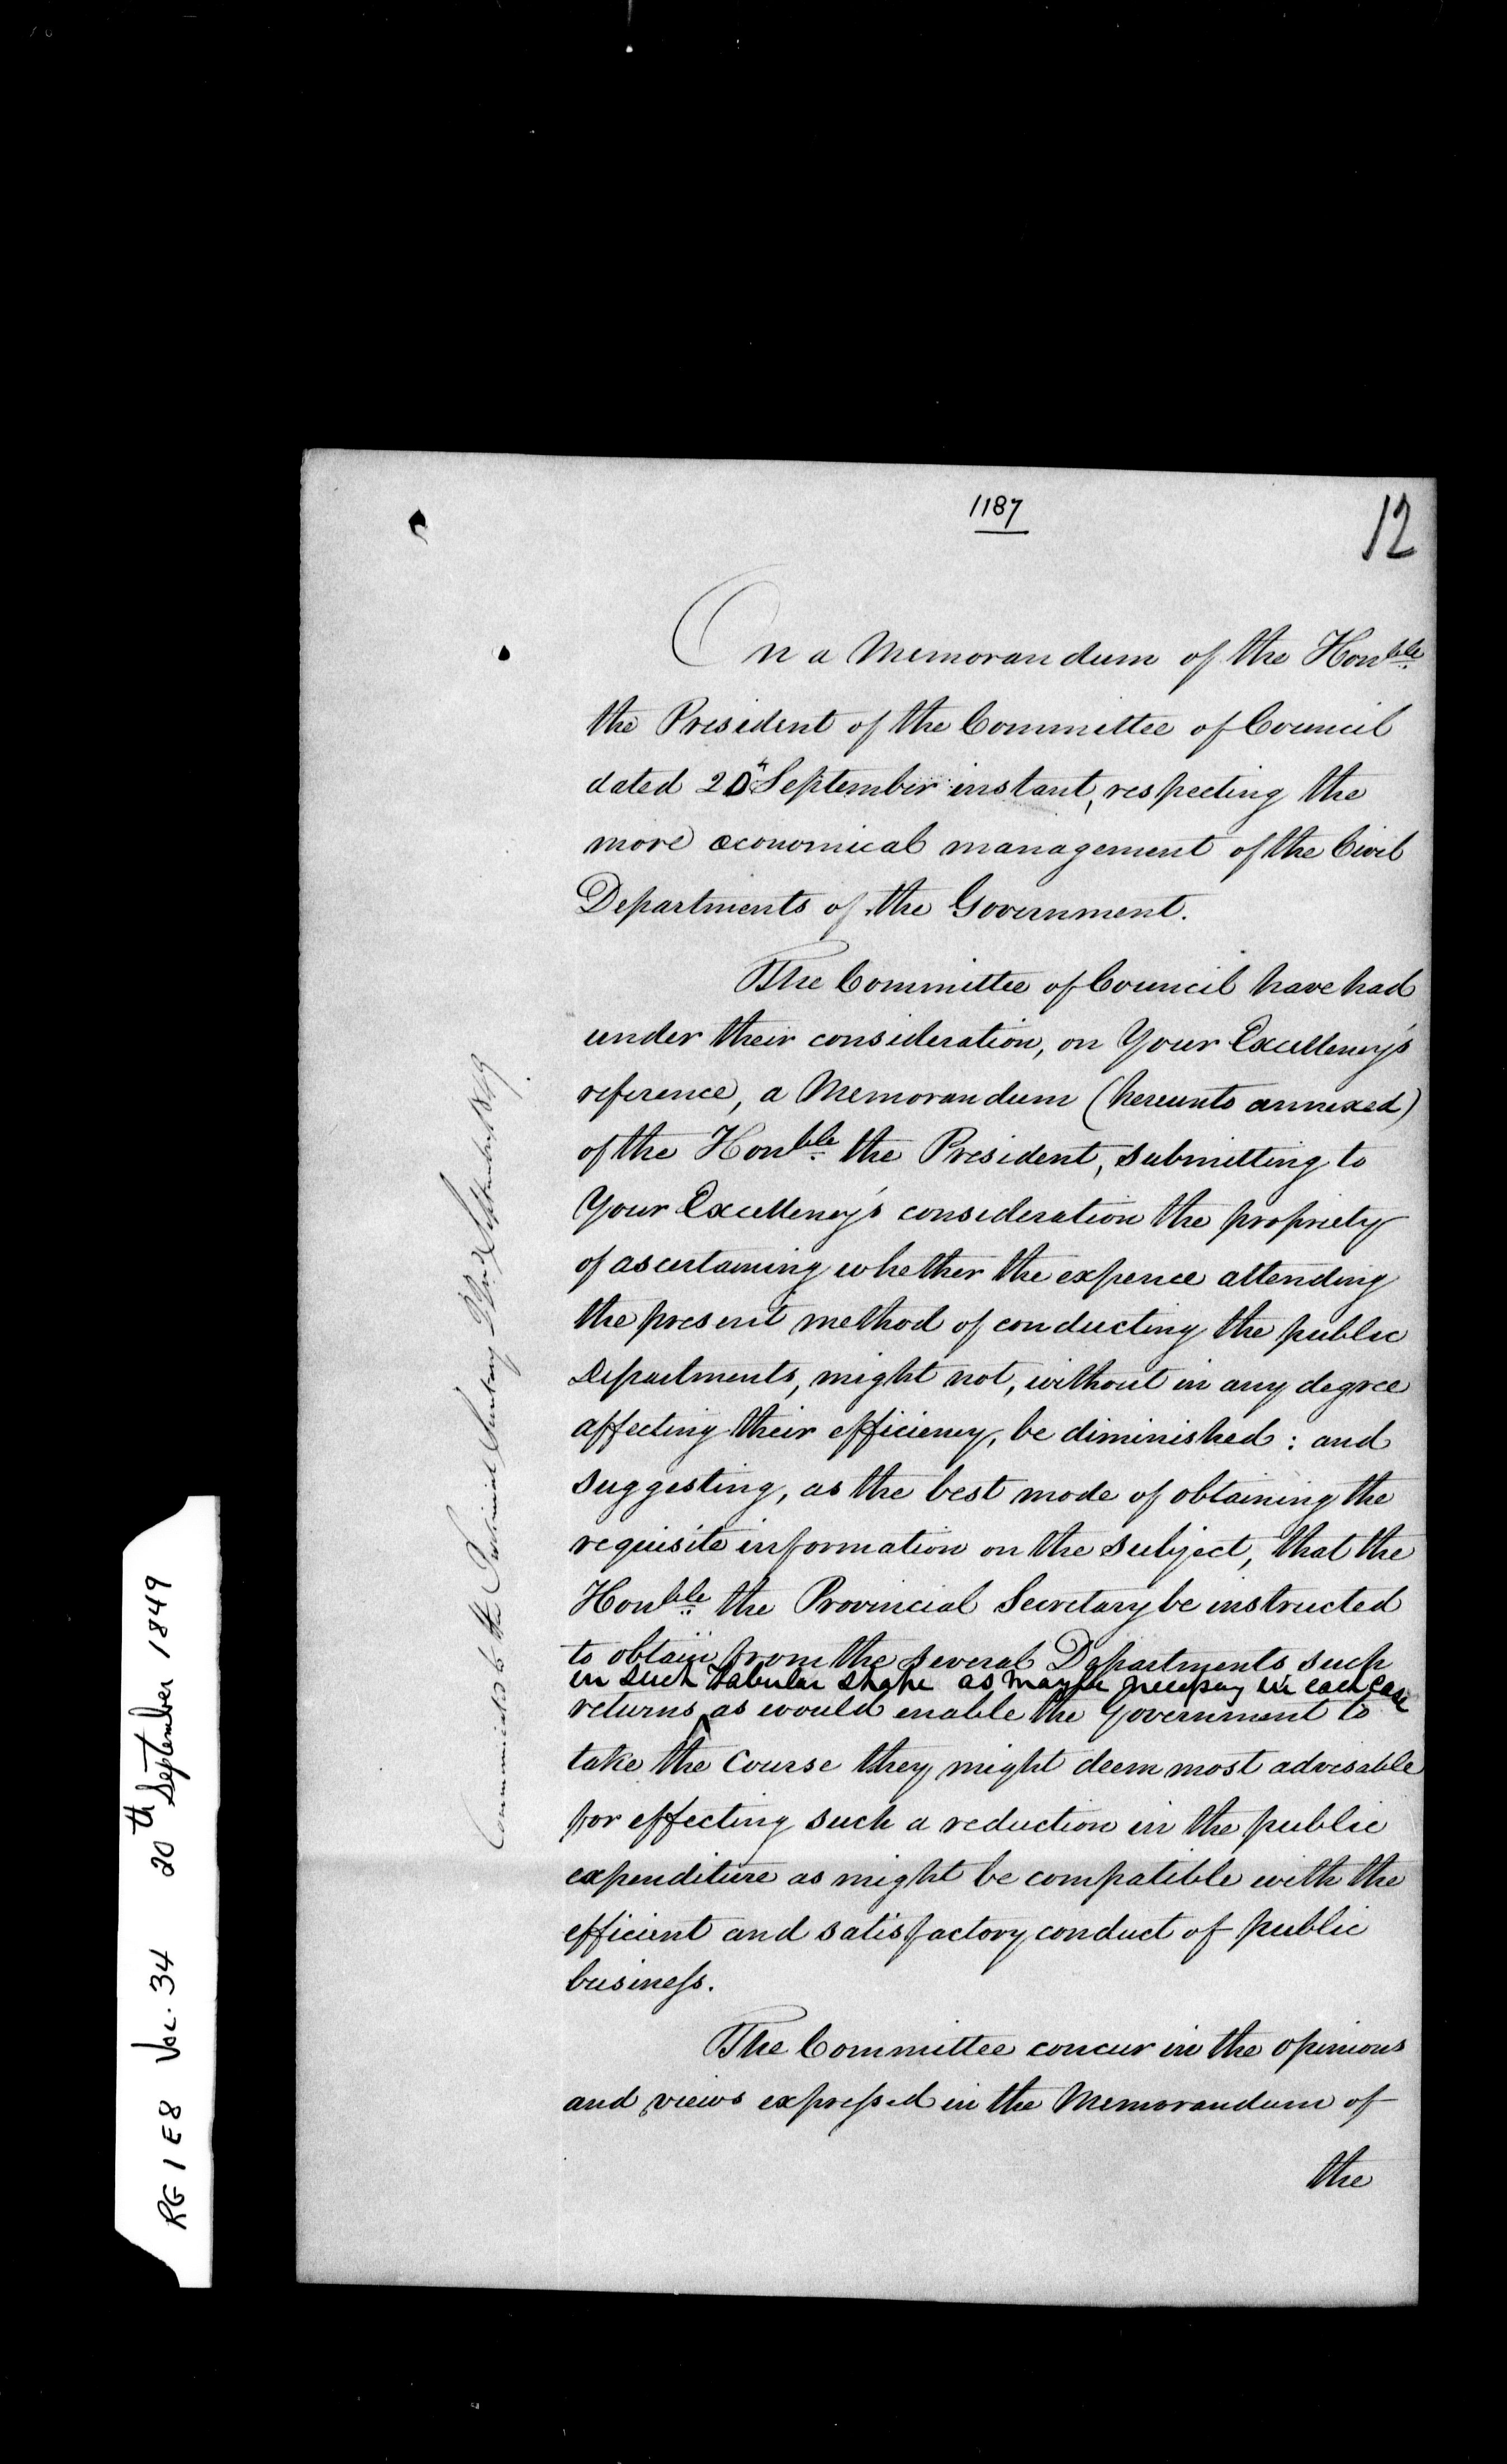 1187
12
On a Memorandum of the Honble
the President of the Committee of Council
dated 20th September instant, respecting the
more œconomical management of the Civil
Departments of the Government.
The Committee of Council have had
under their consideration, on Your Excellency's
reference, a Memorandum (hereunto annexed)
of the Honble the President, submitting to
Your Excellency's consideration the propriety
of ascertaining whether the expence attending
the present method of conducting the public
Departments, might not, without in any degree
affecting their efficiency, be diminished : and
suggesting, as the best mode of obtaining the
requisite information on the subject, that the
Honble the Provincial Secretary be instructed
to obtain from the several Departments such
in such Tabular shape as may be necessary in each case
returns ^ as would enable the Government to
take the course they might deem most advisable
for effecting such a reduction in the public
expenditure as might be compatible with the
efficient and satisfactory conduct of public
business.
The Committee concur in the opinions
and views expressed in the Memorandum of
the
Communicated to the Provincial Secretary September 1849.
RG 1 E8 Vol. 34 20th September 1849